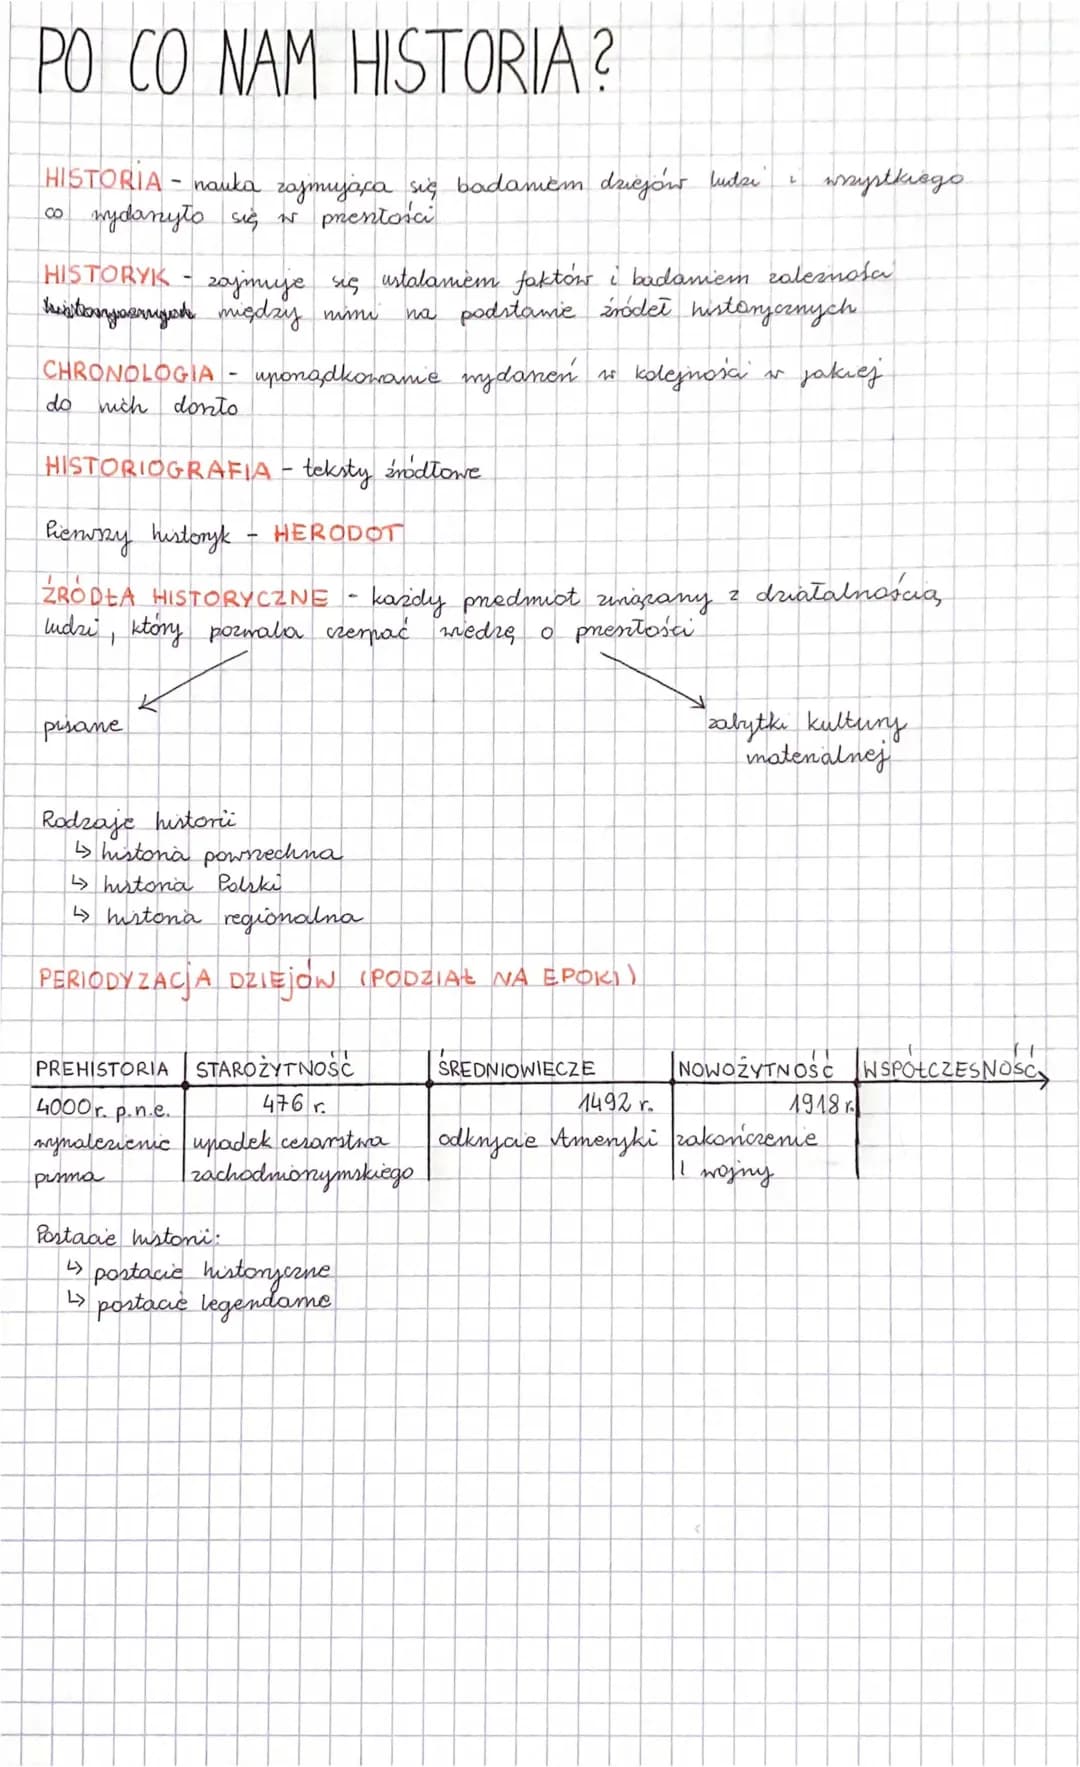 PO CO NAM HISTORIA?
HISTORIA - nauka zajmująca się badaniem dziejów ludzi i wszystkiego
co wydarzyło się w przeszłości
HISTORYK - zajmuje się ustalaniem faktów i badaniem zależności
między nimi na podstawie źródeł historycznych
CHRONOLOGIA - uporządkowanie wydarzeń w kolejności w jakiej
do nich doszło
HISTORIOGRAFIA - teksty źródłowe
Pierwszy historyk - HERODOT
ŹRÓDŁA HISTORYCZNE - każdy przedmiot związany z działalnością
ludzi, który pozwala czerpać wiedzę o przeszłości
pisane
zabytki kultury
materialnej
Rodzaje historii
↳ historia powszechna
↳ historia Polski
↳ historia regionalna
PERIODYZACJA DZIEJÓW (PODZIAŁ NA EPOKI)
PREHISTORIA STAROŻYTNOŚĆ ŚREDNIOWIECZE NOWOŻYTNOŚĆ WSPÓŁCZESNOŚĆ
4000 r. p.n.e. 476 r. 1492 r. 1918 r.
wynalezienie upadek cesarstwa odkrycie Ameryki zakończenie
pisma zachodniorzymskiego I wojny
Postacie historii:
↳ postacie historyczne
↳ postacie legendarne